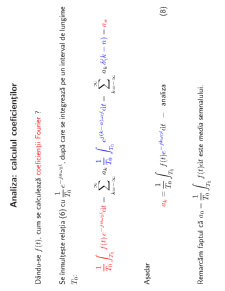 Analiza: calculul coeficienților
Dându-se f(t), cum se calculează coeficienții Fourier ?
Se înmulțește relația (6) cu 1/T₀ e^{-jnω₀t}, după care se integrează pe un interval de lungime
T₀:
1/T₀ ∫_{T₀} f(t)e^{-jnω₀t}dt = ∑_{k=-∞}^{∞} a_k 1/T₀ ∫_{T₀} e^{j(k-n)ω₀t}dt = ∑_{k=-∞}^{∞} a_k δ(k − n) = a_n
Așadar
a_k = 1/T₀ ∫_{T₀} f(t)e^{-jkω₀t}dt − analiza (8)
Remarcăm faptul că a₀ = 1/T₀ ∫_{T₀} f(t)dt este media semnalului.